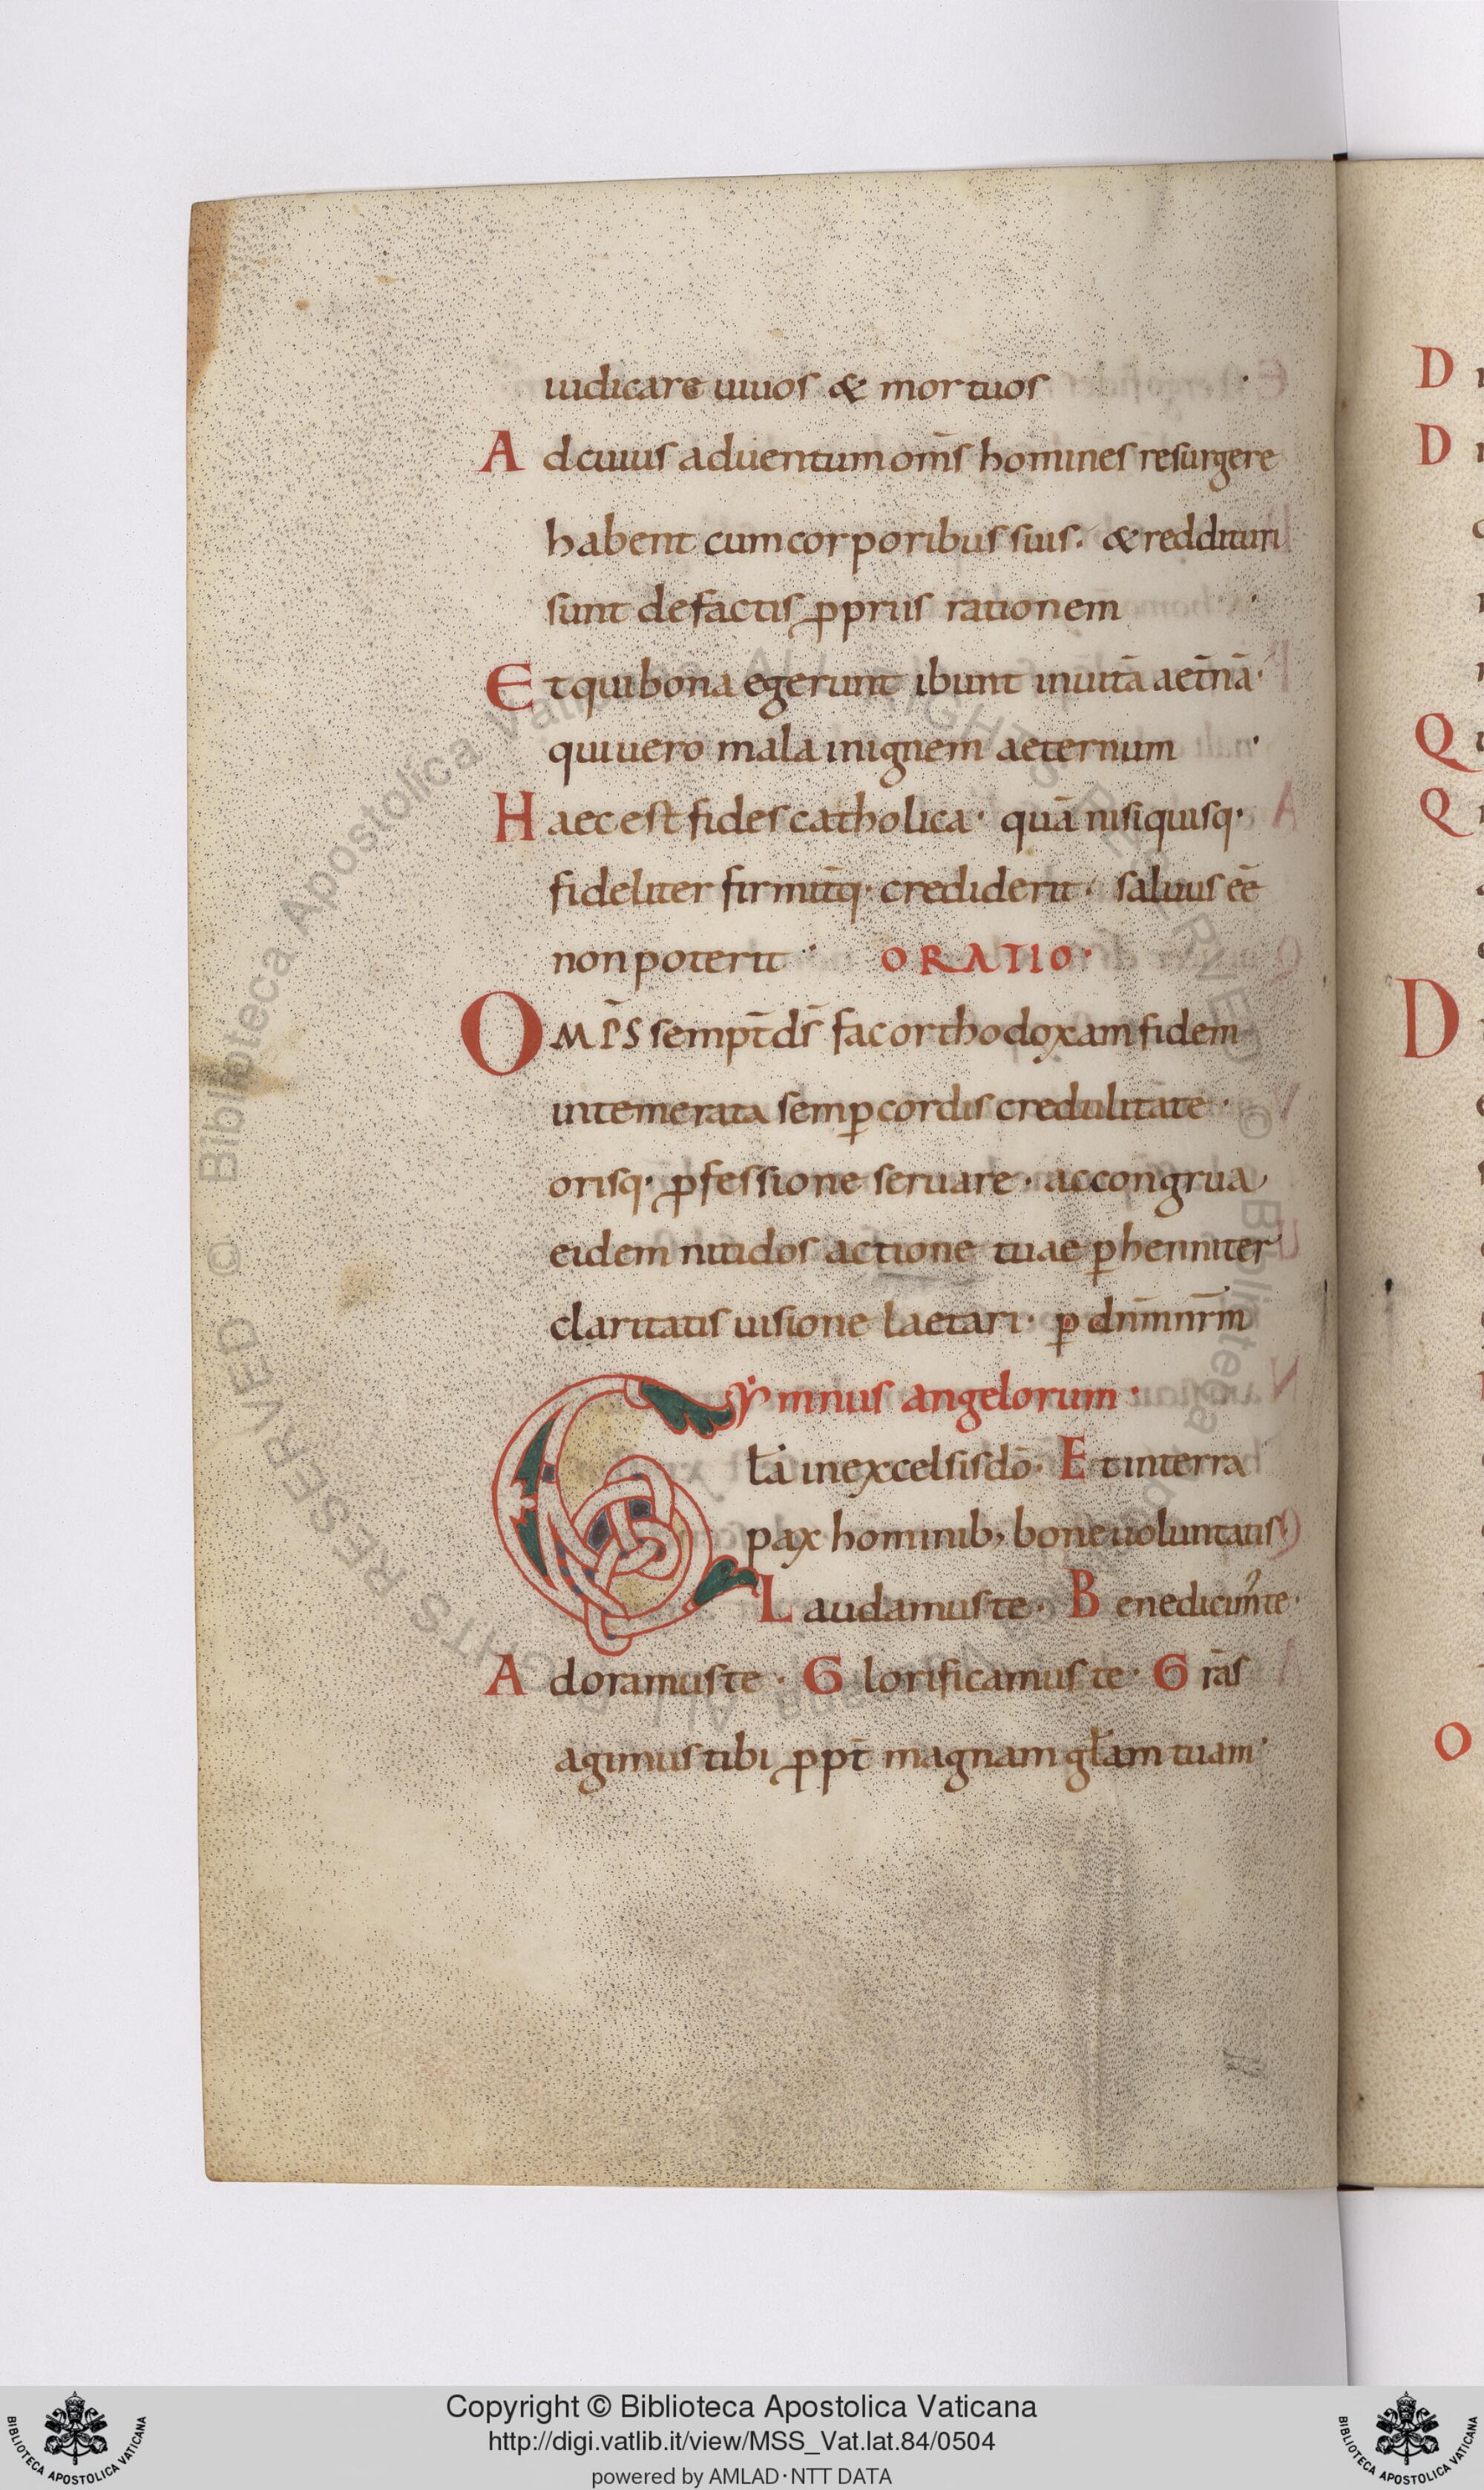 iudicare uiuos & mortuos
Ad cuius aduentum om̄s homines resurgere
habent cum corporibus suis. & reddituri
sunt de factis ꝓpriis rationem
Et qui bona egerunt ibunt in uitā aet̄nā·
qui uero mala in ignem aeternum
Haec est fides catholica· quā nisi quisq·
fideliter firmit̄q· crediderit· saluus eē
non poterit · ORATIO·
OMP̄S sempt̄ ds̄ fac orthodoxam fidem
intemerata semꝑ cordis credulitate·
orisq· ꝓfessione seruare· ac congrua
eidem nitidos actione tuae ꝑhenniter
claritatis uisione laetari· ꝑ dn̄m nr̄m
Ẏmnus angelorum·
Gl̄a in excelsis dō· Et in terra
pax hominib; bone uoluntatis
Laudamus te· Benedicim᾿ te·
Adoramus te· Glorificamus te· Grās
agimus tibi ꝓpt̄ magnam gl̄am tuam·
D
D
Q
Q
D
O
Copyright © Biblioteca Apostolica Vaticana
http://digi.vatlib.it/view/MSS_Vat.lat.84/0504
powered by AMLAD·NTT DATA
BIBLIOTECA APOSTOLICA VATICANA
BIBLIOTECA APOSTOLICA VATICANA
© Biblioteca Apostolica Vaticana ALL RIGHTS RESERVED © Biblioteca Apostolica Vaticana ALL RIGHTS RESERVED